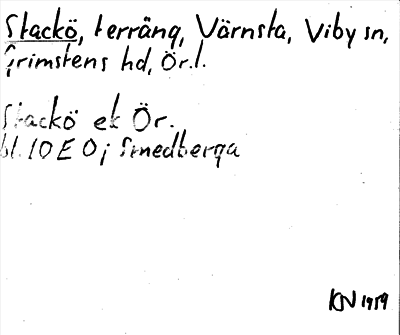 Stackö, terräng, Värnsta, Viby sn,
Grimstens hd, Ör. l.
Stackö ek Ör.
bl. 10 E 0 j Smedberga
KN 1959